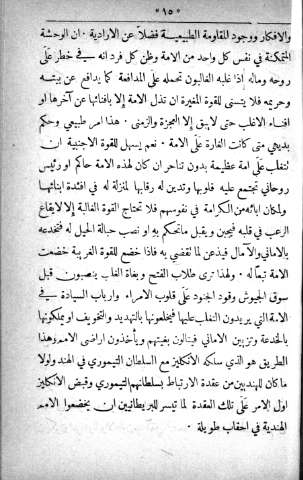 « ١٥ »
والافكار ووجود المقاومة الطبيعية فضلاً عن الارادية . ان الوحشة
المتمكنة في نفس كل واحد من الامة وظن كل فرد انه في خطر على
روحه وماله اذا غلبه الغالبون تحمله على المدافعة كما يدافع عن بيته
وحريمه فلا يتسنى للقوة المغيرة ان تذل الامة إلا بافنائها عن آخرها او
افناء الاغلب حتى لا يبق إلا العجزة والزمنى . هذا امر طبيعي وحكم
بديهي متى كانت الغارة على الامة . نعم يسهل للقوة الاجنبية ان
تتغلب على امة عظيمة بدون تناحر ان كان لهذه الامة حاكم او رئيس
روحاني تجتمع عليه قلوبها وتدين له رقابها لمنزلة له في افئدة ابنائها
ولمكان ابائه من الكرامة في نفوسهم فلا تحتاج القوة الغالبة إلا لايقاع
الرعب في قلبه فيجبن ويقبل ما تحكم به او نصب حبالة الحيل له فتخدعه
بالاماني والآمال فيذعن لما تقضي به فاذا خضع للقوة الغريبة خضعت
الامة تبعاً له . ولهذا ترى طلاب الفتح وبغاة الغلب ينصبون قبل
سوق الجيوش وقود الجنود على قلوب الامراء وارباب السيادة في
الامة التي يريدون التغلب عليها فيخلعونها بالتهديد والتخويف او يملكونها
بالخدعة وتزيين الاماني فينالون بغيتهم ويأخذون اراضي الامم وهذا
الطريق هو الذي سلكه الانكليز مع السلطان التيموري في الهند ولولا
ما كان للهنديين من عقدة الارتباط بسلطانهم التيموري وقبض الانكليز
اول الامر على تلك العقدة لما تيسر للبريطانيين ان يخضعوا الامم
الهندية في احقاب طويلة .